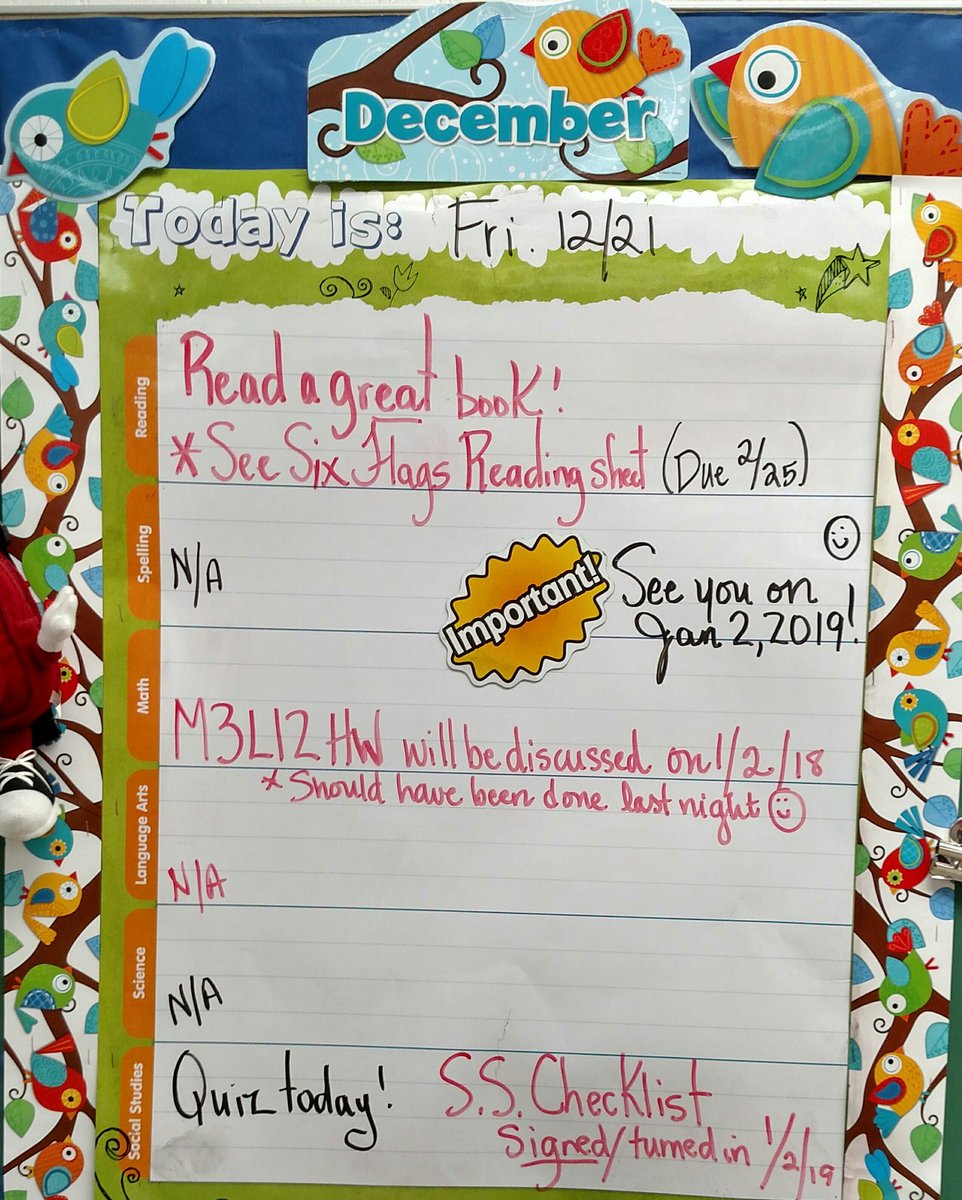 December
Today is: Fri. 12/21
Reading
Read a great book!
*See Six Flags Reading sheet (Due 2/25)
Spelling
N/A
Important!
See you on
Jan 2, 2019!
Math
M3L12 HW will be discussed on 1/2/18
* Should have been done last night
Language Arts
N/A
Science
N/A
Social Studies
Quiz today!
S.S. Checklist
Signed/turned in 1/2/19